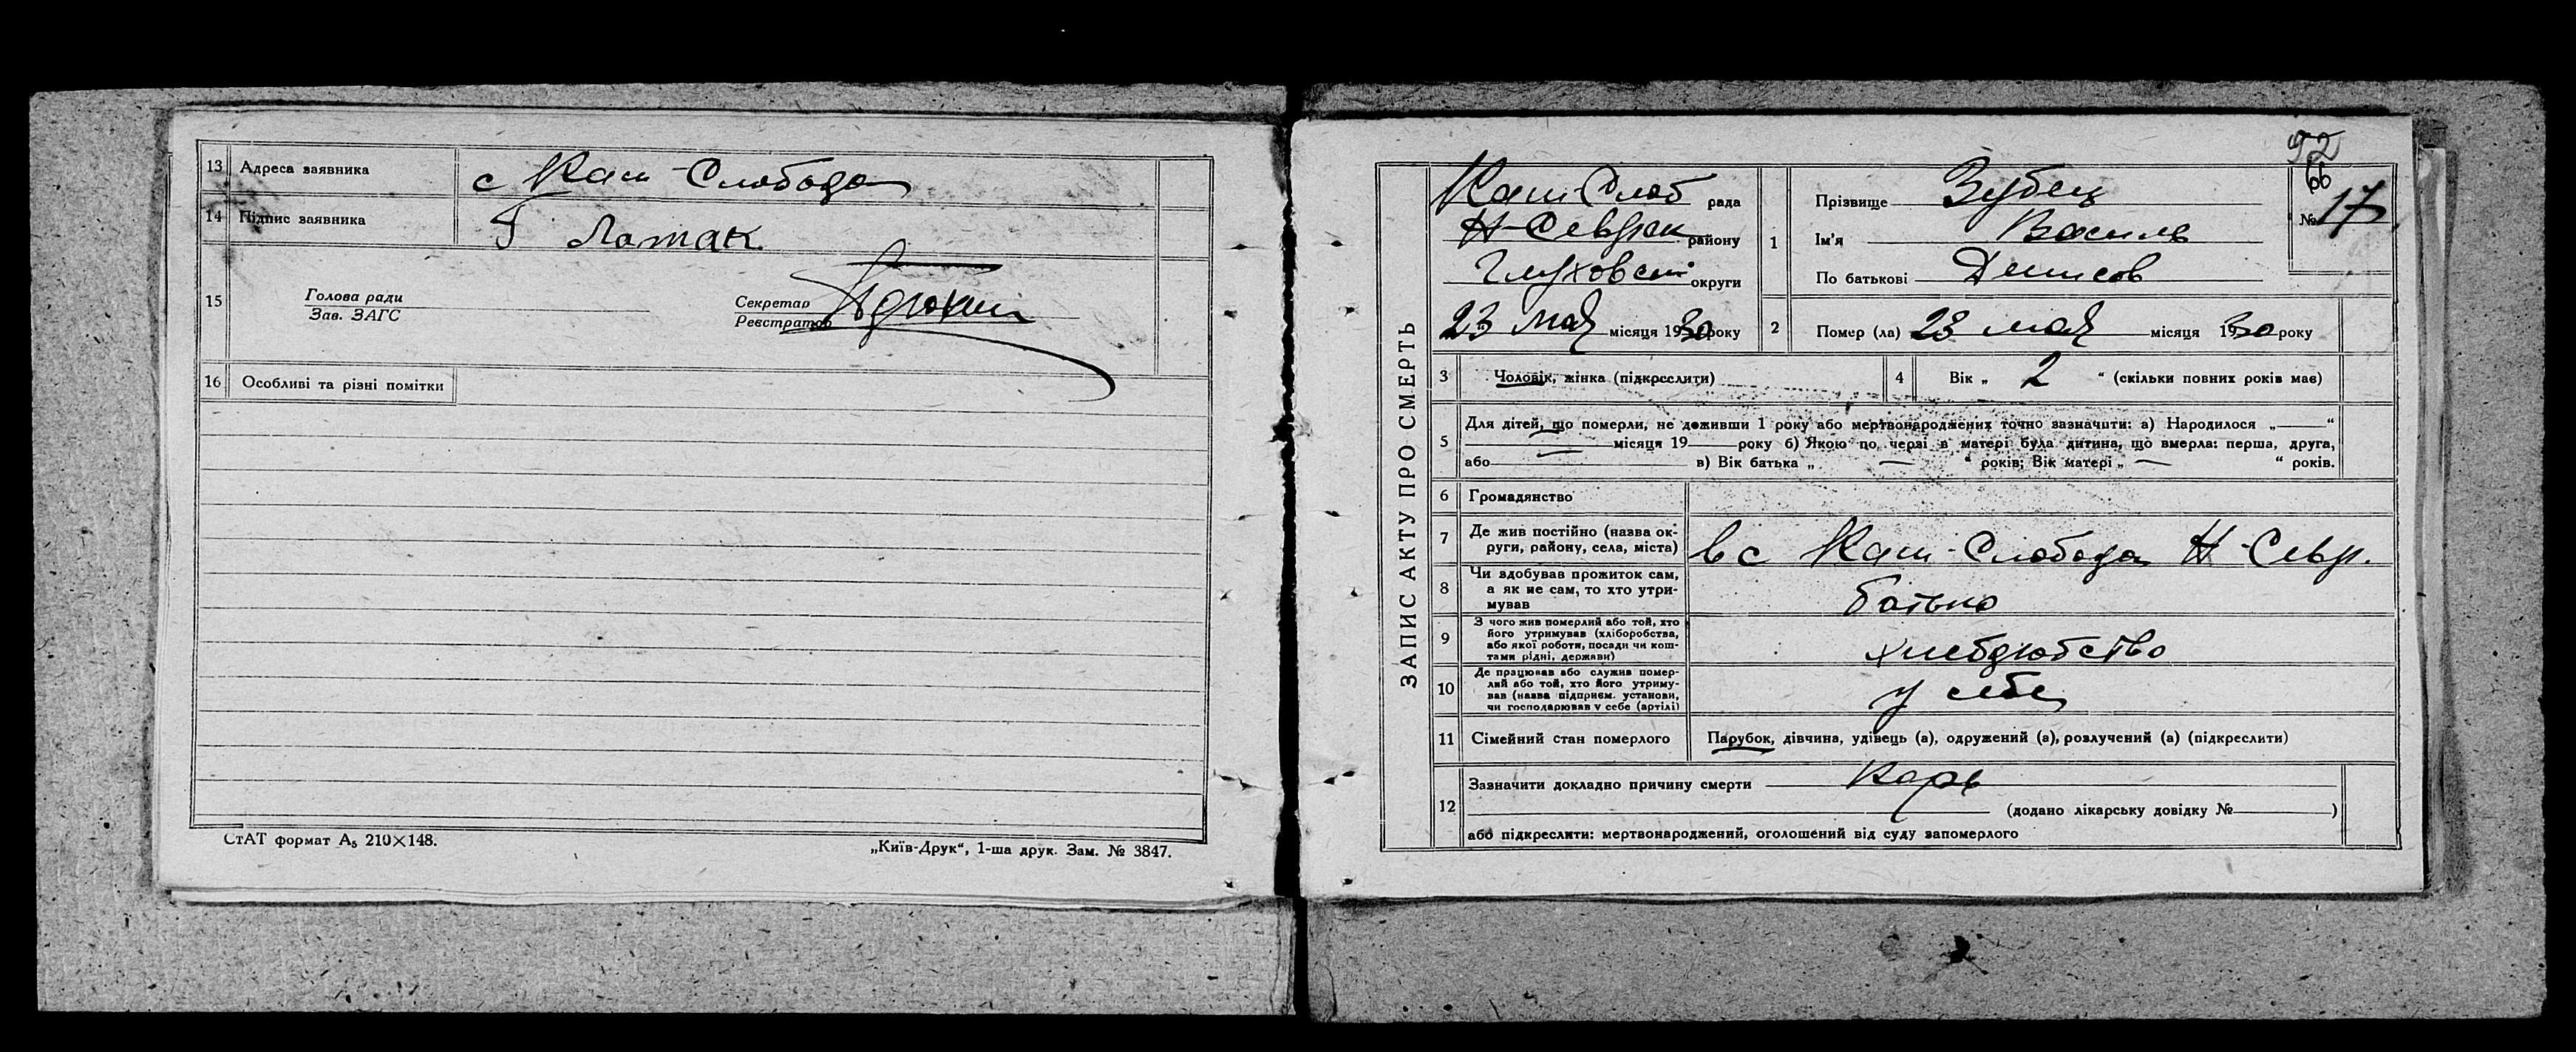 13 Адреса заявника с Кам-Слобода
14 Підпис заявника Г Латак
15 Голова ради
Зав. ЗАГС
Секретар
Реєстратор
16 Особливі та різні помітки
СтАТ формат А₅ 210×148.
„Київ-Друк“, 1-ша друк. Зам. № 3847.
92
66
№ 17
ЗАПИС АКТУ ПРО СМЕРТЬ
Кам-Слоб рада
Н-Северск району
Глуховск округи
23 мая місяця 1930 року
1 Прізвище Зубец
Ім'я Василь
По батькові Денисов
2 Помер (ла) 23 мая місяця 1930 року
3 Чоловік, жінка (підкреслити)
4 Вік „ 2 “ (скільки повних років має)
5 Для дітей, що померли, не доживши 1 року або мертвонароджених точно зазначити: а) Народилося „ — “
місяця 19 року б) Якою по черзі в матері була дитина, що вмерла: перша, друга,
або — в) Вік батька „ — “ років; Вік матері „ — “ років.
6 Громадянство
7 Де жив постійно (назва ок-
руги, району, села, міста) в с Кам-Слобода Н-Севр.
8 Чи здобував прожиток сам,
а як не сам, то хто утри-
мував батько
9 З чого жив померлий або той, хто
його утримував (хліборобства,
або якої роботи, посади чи кош-
тами рідні, держави)
10 Де працював або служив помер-
лий або той, хто його утриму-
вав (назва підприєм. установи,
чи господарював у себе (артілі) у себе
11 Сімейний стан померлого Парубок, дівчина, удівець (а), одружений (а), розлучений (а) (підкреслити)
12 Зазначити докладно причину смерти Корь
(додано лікарську довідку № )
або підкреслити: мертвонароджений, оголошений від суду запомерлого